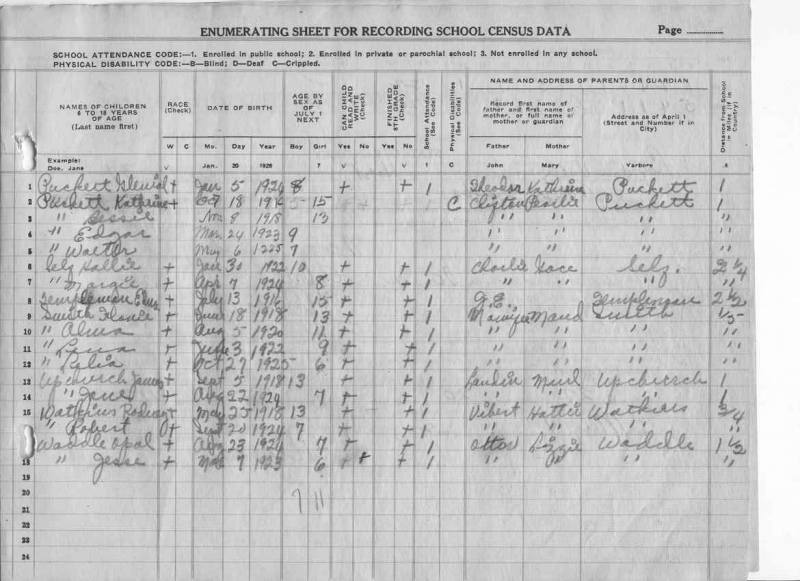 ENUMERATING SHEET FOR RECORDING SCHOOL CENSUS DATA Page
SCHOOL ATTENDANCE CODE:—1. Enrolled in public school; 2. Enrolled in private or parochial school; 3. Not enrolled in any school.
PHYSICAL DISABILITY CODE:—B—Blind; D—Deaf C—Crippled.
NAMES OF CHILDREN 6 TO 18 YEARS OF AGE (Last name first)
RACE (Check)
W C
DATE OF BIRTH
Mo. Day Year
AGE BY SEX AS OF JULY 1 NEXT
Boy Girl
CAN CHILD READ AND WRITE (Check)
Yes No
FINISHED 8TH GRADE (Check)
Yes No
School Attendance (See Code)
Physical Disabilities (See Code)
NAME AND ADDRESS OF PARENTS OR GUARDIAN
Record first name of father and first name of mother, or full name of mother or guardian
Father Mother
Address as of April 1 (Street and Number if in City)
Distance from School in Miles (if in Country)
Example:
Doe, Jane v Jan. 20 1926 7 v v 1 C John Mary Yarboro .6
1 Puckett + Jan 5 1924 8 + + 1 Puckett 1
2 Puckett Kathrine + 18 15 C Clifton Puckett 1
3 " Bessie Nov. 8 1918 13 " " " "
4 " Edgar Mar. 24 1923 9 " " " "
5 " Walter May 6 7 " " " "
6 Selz Hallie + Jan 30 1922 10 + + 1 Charlie Selz. 2 1/4
7 " Margie + Apr 7 1924 8 + + 1 " " " "
8 Templeman + July 13 1916 15 + + 1 G.E. Templeman 2 1/2
9 Smith + June 18 1918 13 + + 1 Maud Smith
10 " Alma + Aug 5 1920 11 + + 1 " " " "
11 " June 3 1922 9 + + 1 " " " "
12 " + Oct 27 1925 6 + + 1 " " " "
13 Upchurch James + Sept 5 1918 13 + + 1 Upchurch 1
14 " + Aug 22 1924 7 + + 1 " " " "
15 Watkins + May 25 1918 13 + + 1 Vibert Hattie Watkins 3/4
" Robert + Sept 20 1924 7 + + 1 " " " "
Waddle Opal + Aug 23 1924 7 + + 1 Lizzie Waddle 1 1/2
18 " Jesse + 7 6 + + + 1 " " " "
19
20 7 11
21
22
23
24